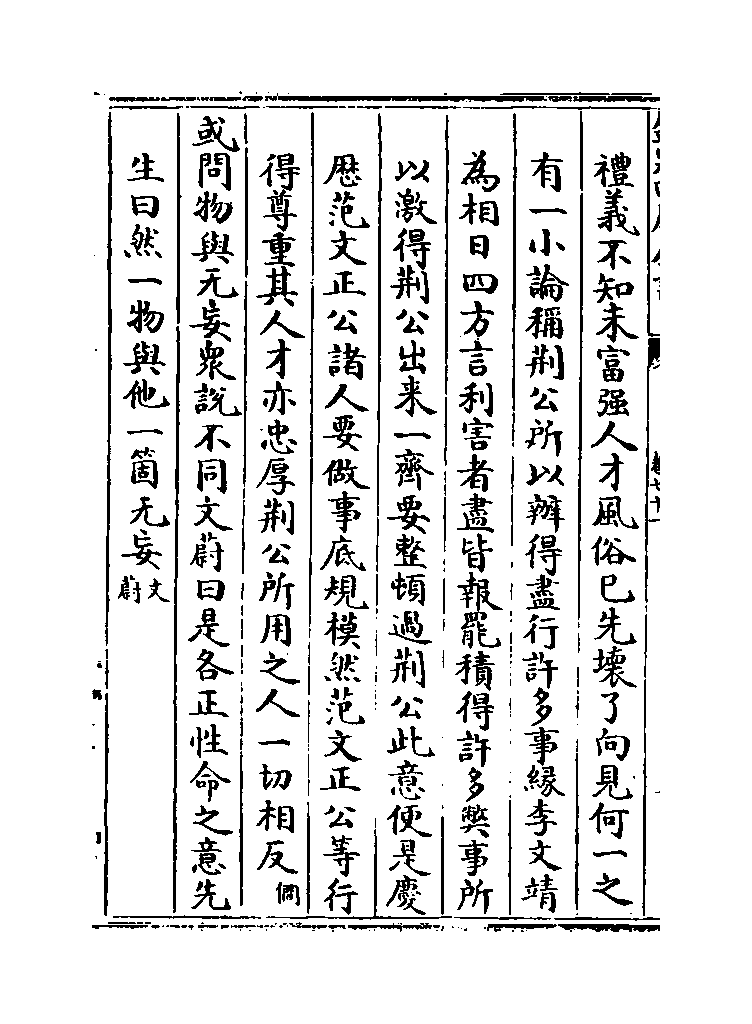 禮義不知未富强人才風俗已先壞了向見何一之
有一小論稱荆公所以辦得盡行許多事緣李文靖
為相日四方言利害者盡皆報罷積得許多弊事所
以激得荆公出来一齊要整頓過荆公此意便是慶
厯范文正公諸人要做事底規模然范文正公等行
得尊重其人才亦忠厚荆公所用之人一切相反 僴
或問物與无妄衆説不同文蔚曰是各正性命之意先
生曰然一物與他一箇无妄 文蔚